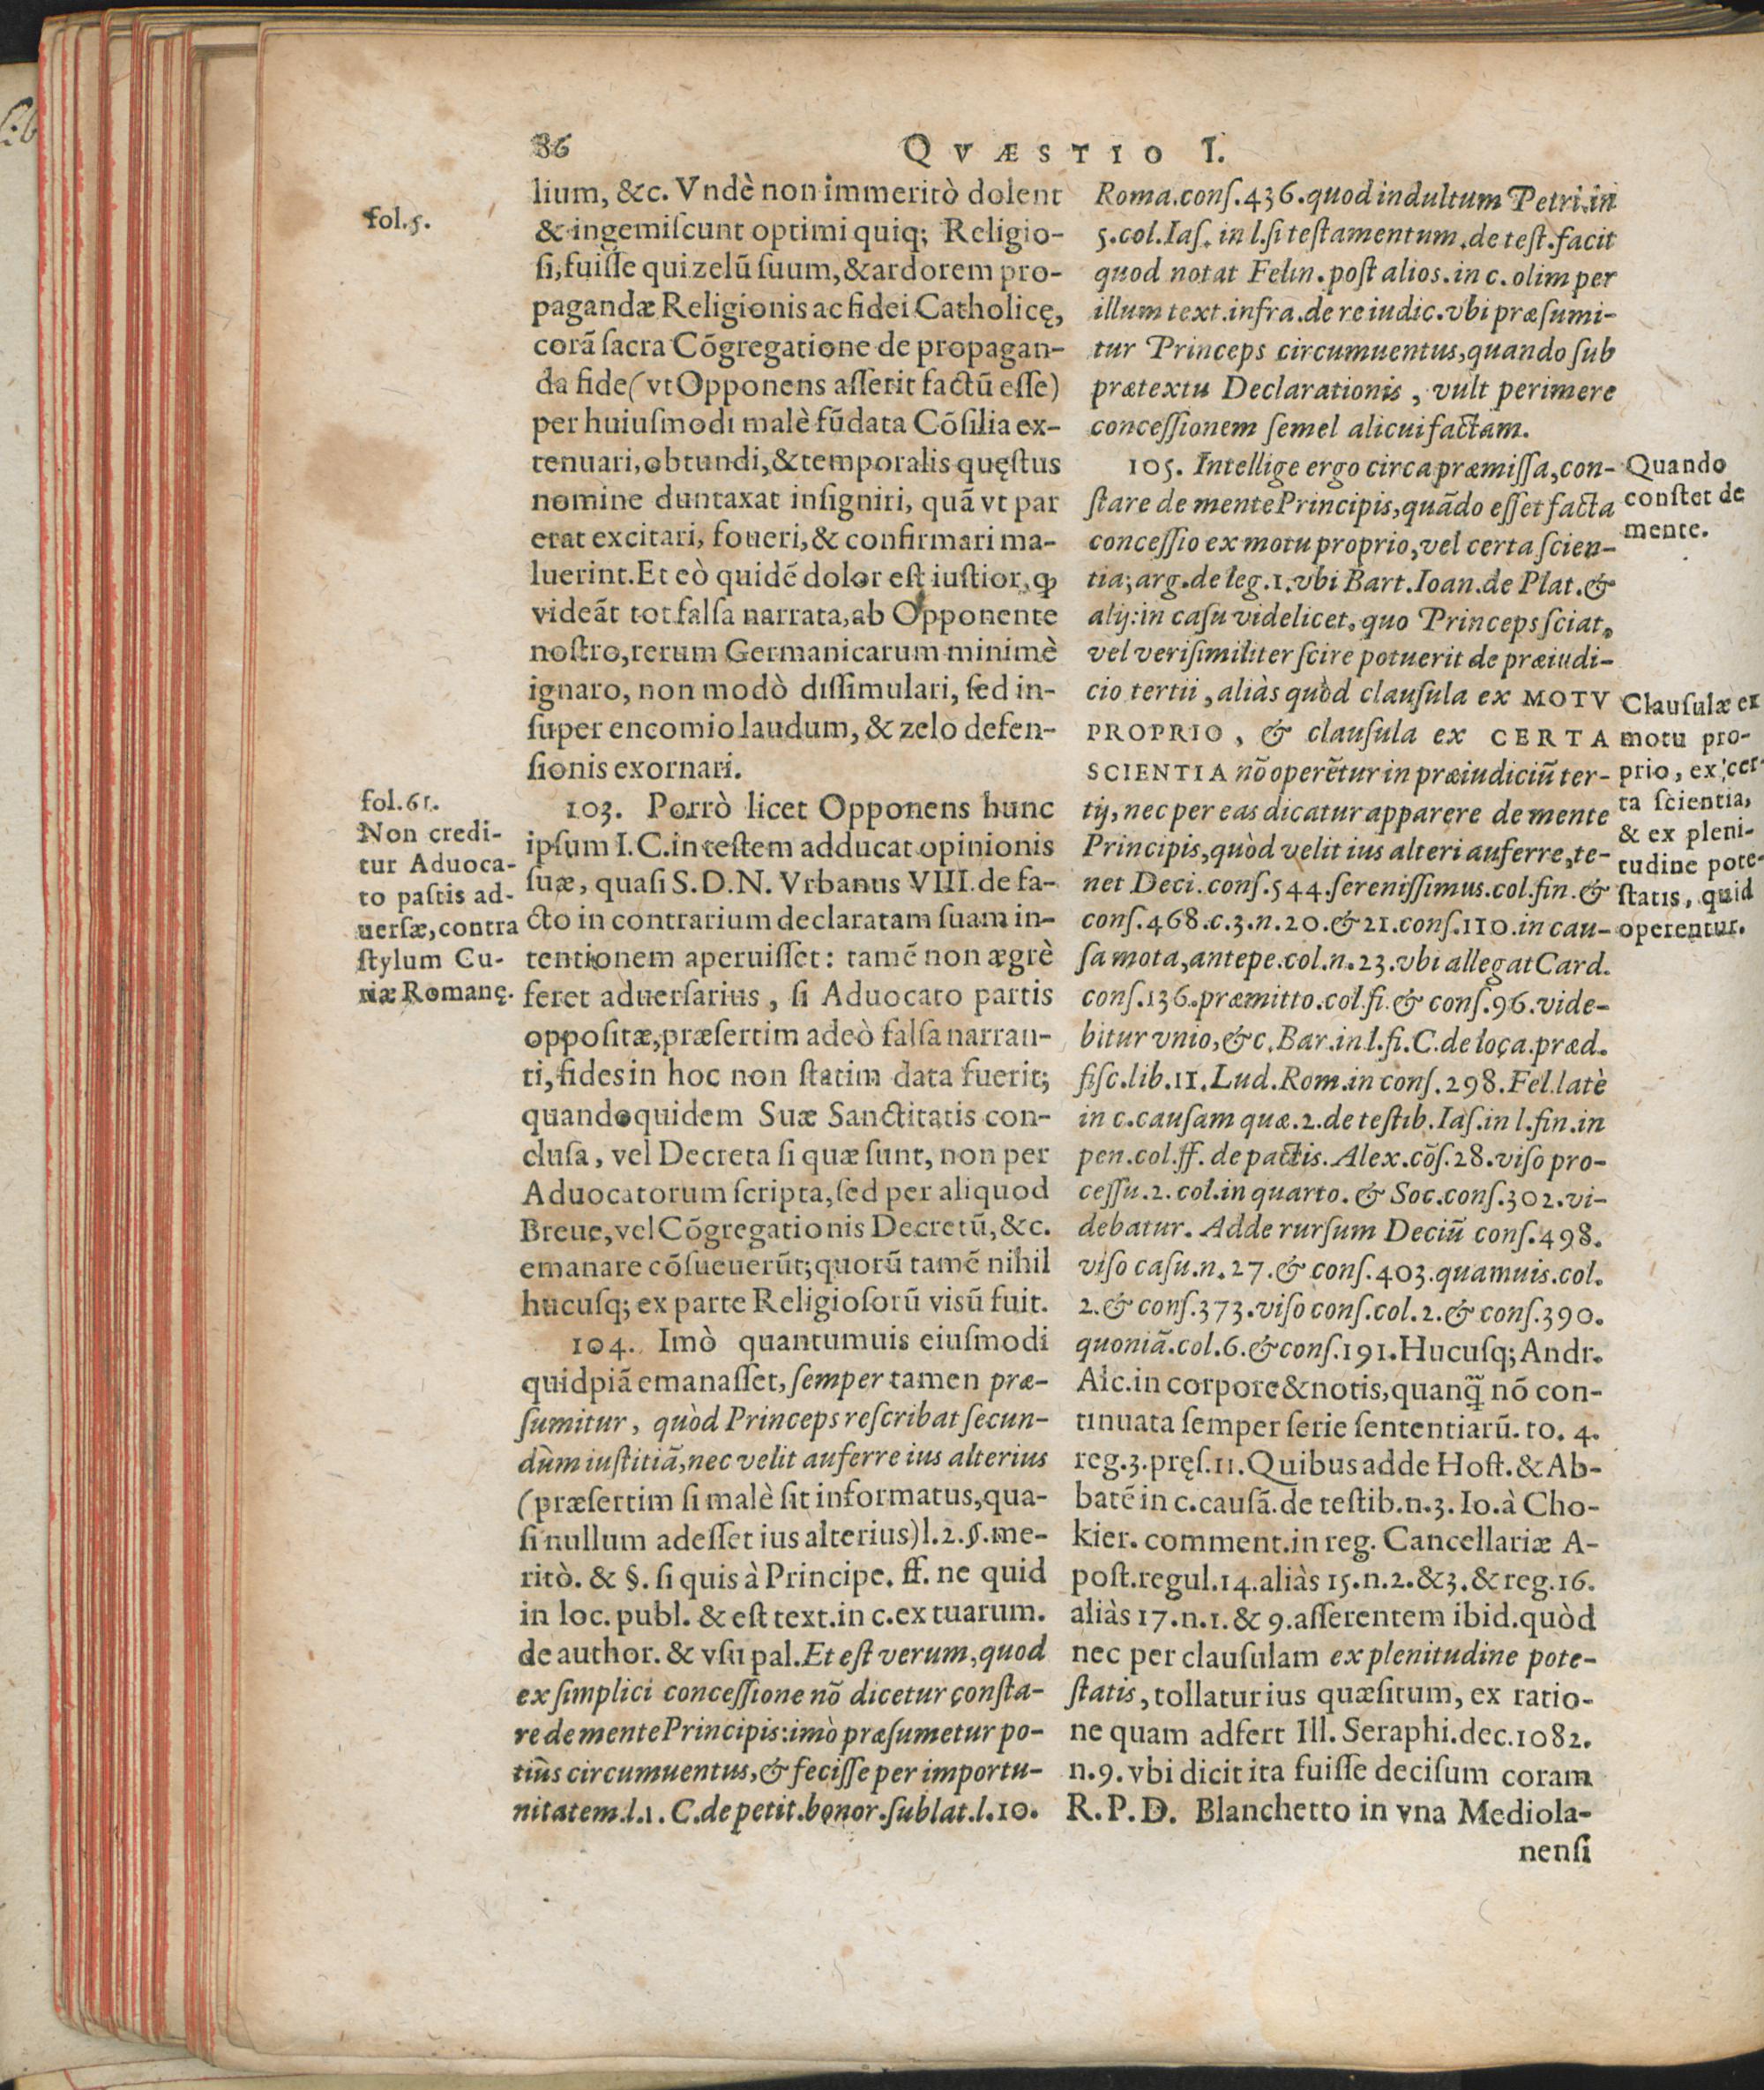 86
QVÆSTIO I.
fol.5.
lium, &c. Vndè non immeritò dolent
& ingemiſcunt optimi quiq; Religio-
ſi, fuiſſe qui zelũ ſuum, & ardorem pro-
pagandæ Religionis ac fidei Catholicę,
corã ſacra Cõgregatione de propagan-
da fide (vt Opponens aſſerit factũ eſſe)
per huiuſmodi malè fũdata Cõſilia ex-
tenuari, obtundi, & temporalis quęſtus
nomine duntaxat inſigniri, quã vt par
erat excitari, foueri, & confirmari ma-
luerint. Et eò quidẽ dolor eſt iuſtior, ꝙ
videãt tot falſa narrata, ab Opponente
noſtro, rerum Germanicarum minimè
ignaro, non modò diſſimulari, ſed in-
ſuper encomio laudum, & zelo defen-
ſionis exornari.
fol.61.
Non credi-
tur Aduoca-
to partis ad-
uerſæ, contra
ſtylum Cu-
riæ Romanę.
103. Porrò licet Opponens hunc
ipſum I.C. in teſtem adducat opinionis
ſuæ, quaſi S.D.N. Vrbanus VIII. de fa-
cto in contrarium declaratam ſuam in-
tentionem aperuiſſet: tamẽ non ægrè
feret aduerſarius, ſi Aduocato partis
oppoſitæ, præſertim adeò falſa narran-
ti, fides in hoc non ſtatim data fuerit;
quandoquidem Suæ Sanctitatis con-
cluſa, vel Decreta ſi quæ ſunt, non per
Aduocatorum ſcripta, ſed per aliquod
Breue, vel Cõgregationis Decretũ, &c.
emanare cõſueuerũt; quorũ tamẽ nihil
hucuſq; ex parte Religioſorũ viſũ fuit.
104. Imò quantumuis eiuſmodi
quidpiã emanaſſet, ſemper tamen præ-
ſumitur, quòd Princeps reſcribat ſecun-
dùm iuſtitiã, nec velit auferre ius alterius
(præſertim ſi malè ſit informatus, qua-
ſi nullum adeſſet ius alterius) l.2.§.me-
ritò. & §. ſi quis à Principe. ff. ne quid
in loc. publ. & eſt text. in c. ex tuarum.
de author. & vſu pal. Et eſt verum, quod
ex ſimplici conceſſione nõ dicetur conſta-
re de mente Principis: imò præſumetur po-
tiùs circumuentus, & feciſſe per importu-
nitatem. l.1. C. de petit. bonor. ſublat. l.10.
Roma. conſ.436. quod indultum Petri. in
5. col. Iaſ. in l. ſi teſtamentum. de teſt. facit
quod notat Felin. poſt alios. in c. olim per
illum text. infra. de re iudic. vbi præſumi-
tur Princeps circumuentus, quando ſub
prætextu Declarationis, vult perimere
conceſſionem ſemel alicui factam.
105. Intellige ergo circa præmiſſa, con-
ſtare de mente Principis, quãdo eſſet facta
conceſſio ex motu proprio, vel certa ſcien-
tia; arg. de leg.1. vbi Bart. Ioan. de Plat. &
alij: in caſu videlicet, quo Princeps ſciat,
vel veriſimiliter ſcire potuerit de præiudi-
cio tertii, aliàs quòd clauſula ex MOTV
PROPRIO, & clauſula ex CERTA
SCIENTIA nõ operẽtur in præiudiciũ ter-
tij, nec per eas dicatur apparere de mente
Principis, quòd velit ius alteri auferre, te-
net Deci. conſ.544. ſereniſſimus. col. fin. &
conſ.468. c.3. n.20. & 21. conſ.110. in cau-
ſa mota, antepe. col. n.23. vbi allegat Card.
conſ.136. præmitto. col. fi. & conſ.96. vide-
bitur vnio, &c. Bar. in l. fi. C. de loca. præd.
fiſc. lib.11. Lud. Rom. in conſ.298. Fel. latè
in c. cauſam quæ. 2. de teſtib. Iaſ. in l. fin. in
pen. col. ff. de pactis. Alex. cõſ.28. viſo pro-
ceſſu. 2. col. in quarto. & Soc. conſ.302. vi-
debatur. Adde rurſum Deciũ conſ.498.
viſo caſu. n.27. & conſ.403. quamuis. col.
2. & conſ.373. viſo conſ. col.2. & conſ.390.
quoniã. col.6. & conſ.191. Hucuſq; Andr.
Alc. in corpore & notis, quanq̃ nõ con-
tinuata ſemper ſerie ſententiarũ. to. 4.
reg.3. pręſ.11. Quibus adde Hoſt. & Ab-
batẽ in c. cauſã. de teſtib. n.3. Io. à Cho-
kier. comment. in reg. Cancellariæ A-
poſt. regul.14. aliàs 15. n.2. & 3. & reg.16.
aliàs 17. n.1. & 9. aſſerentem ibid. quòd
nec per clauſulam ex plenitudine pote-
ſtatis, tollatur ius quæſitum, ex ratio-
ne quam adfert Ill. Seraphi. dec.1082.
n.9. vbi dicit ita fuiſſe deciſum coram
R.P.D. Blanchetto in vna Mediola-
nenſi
Quando
conſtet de
mente.
Clauſulæ ex
motu pro-
prio, ex cer-
ta ſcientia,
& ex pleni-
tudine pote-
ſtatis, quid
operentur.